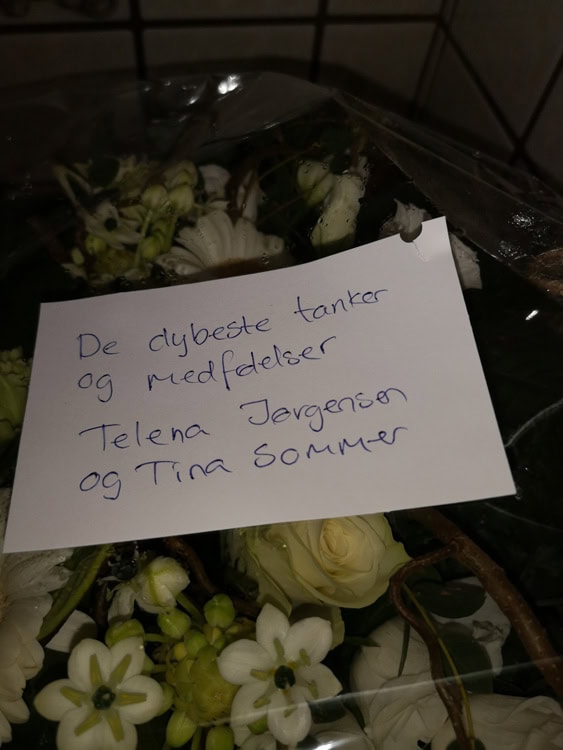 De dybeste tanker
og medfølelser
Telena Jørgensen
og Tina Sommer